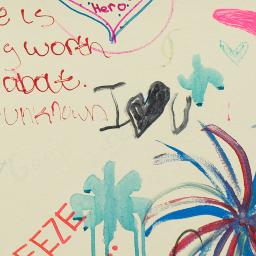 Hero.
e is
g worth
about.
unknown
I U
EEZE